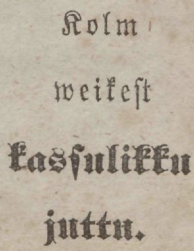 Kolm
weikest
kassulikku
juttu.